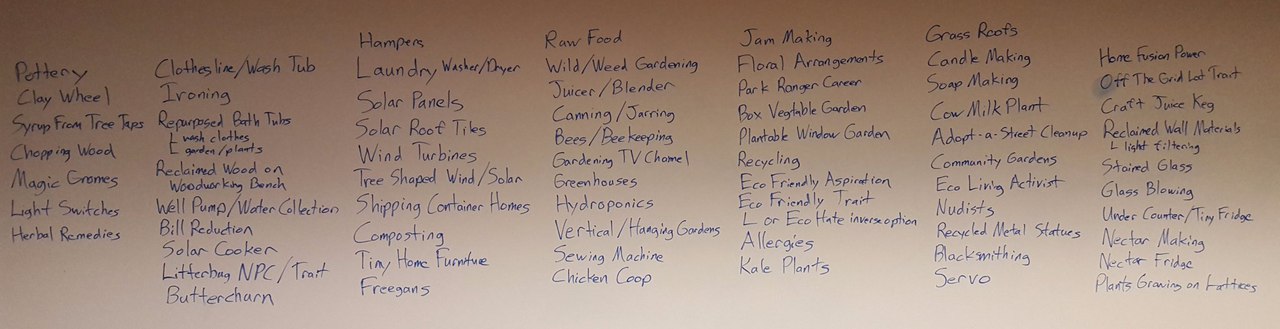 Pottery
Clay Wheel
Syrup From Tree Taps
Chopping Wood
Magic Gnomes
Light Switches
Herbal Remedies
Clothesline/Wash Tub
Ironing
Repurposed Bath Tubs
L wash clothes
L garden/plants
Reclaimed Wood on
Woodworking Bench
Well Pump/Water Collection
Bill Reduction
Solar Cooker
Litterbug NPC/Trait
Butterchurn
Hampers
Laundry Washer/Dryer
Solar Panels
Solar Roof Tiles
Wind Turbines
Tree Shaped Wind/Solar
Shipping Container Homes
Composting
Tiny Home Furniture
Freegans
Raw Food
Wild/Weed Gardening
Juicer/Blender
Canning/Jarring
Bees/Beekeeping
Gardening TV Channel
Greenhouses
Hydroponics
Vertical/Hanging Gardens
Sewing Machine
Chicken Coop
Jam Making
Floral Arrangements
Park Ranger Career
Box Vegtable Garden
Plantable Window Garden
Recycling
Eco Friendly Aspiration
Eco Friendly Trait
L or Eco Hate inverse option
Allergies
Kale Plants
Grass Roofs
Candle Making
Soap Making
Cow Milk Plant
Adopt-a-Street Cleanup
Community Gardens
Eco Living Activist
Nudists
Recycled Metal Statues
Blacksmithing
Servo
Home Fusion Power
Off The Grid Lot Trait
Craft Juice Keg
Reclaimed Wall Materials
L light filtering
Stained Glass
Glass Blowing
Under Counter/Tiny Fridge
Nectar Making
Nectar Fridge
Plants Growing on Lattices